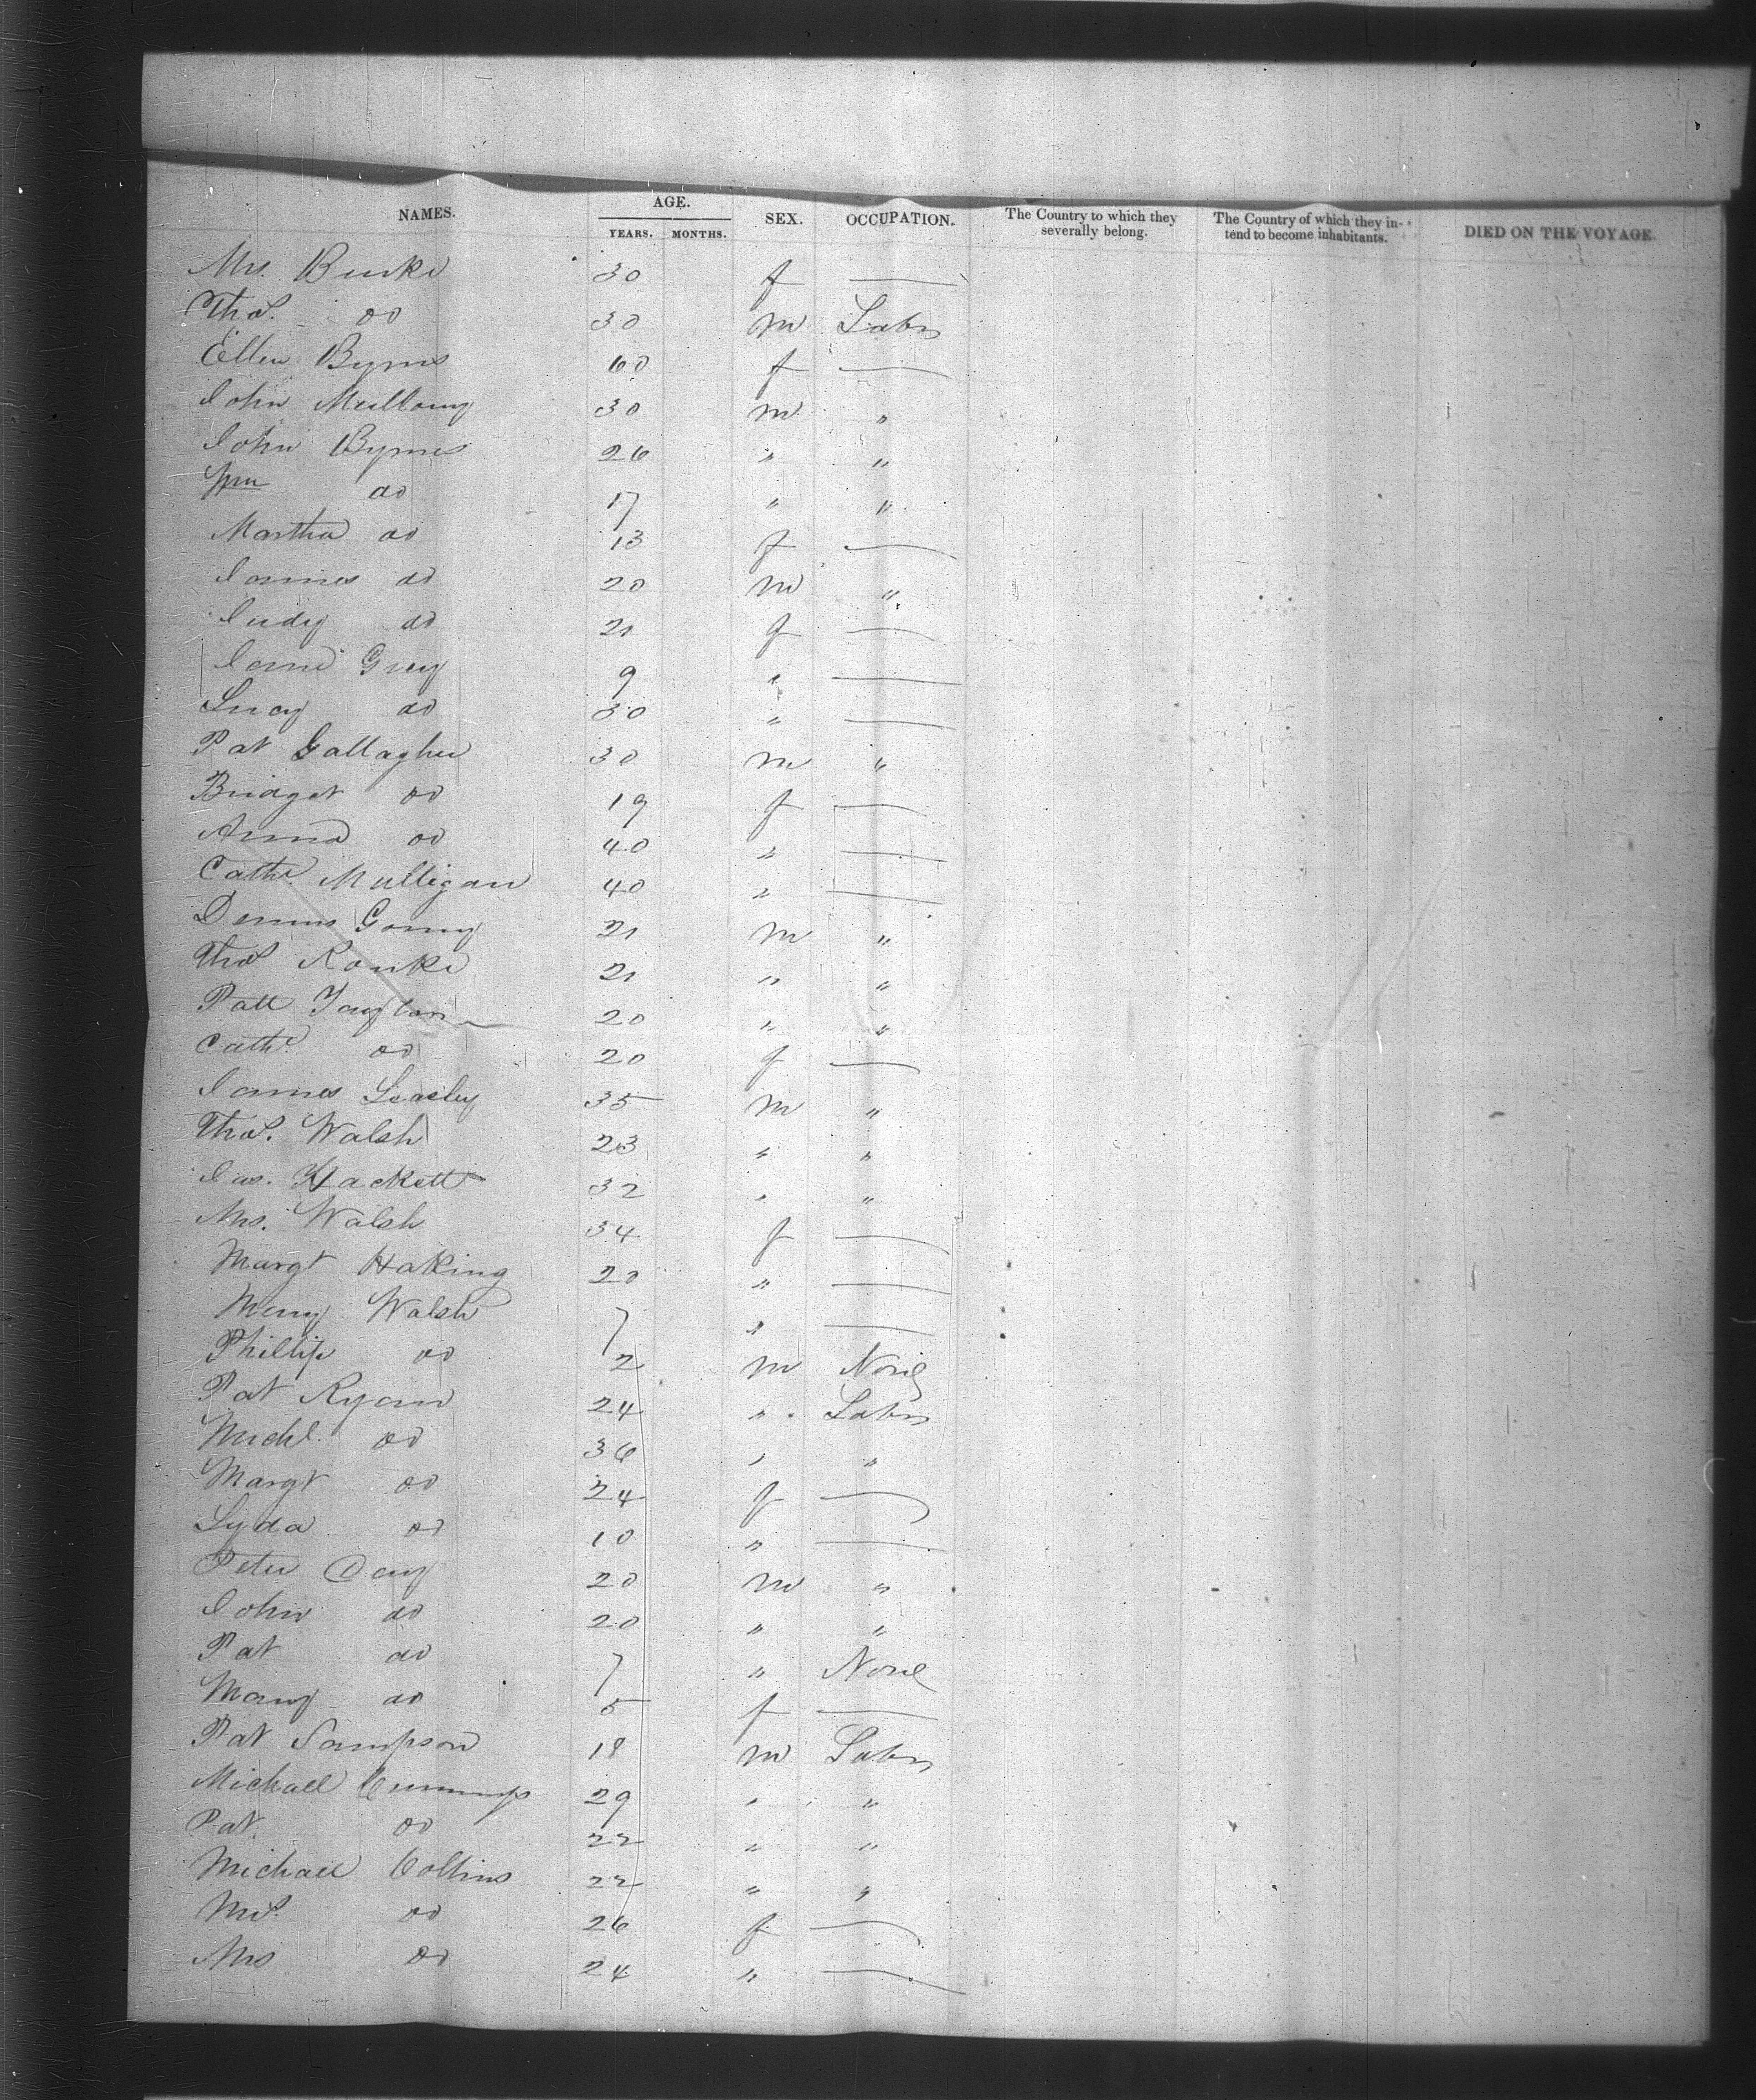 NAMES. AGE. SEX. OCCUPATION. The Country to which they severally belong. The Country of which they intend to become inhabitants. DIED ON THE VOYAGE.
YEARS. MONTHS.
Mrs. Burke 30 f —
Thos. do 30 m Labr
Ellen Byrne 60 f —
John Mullowny 30 m "
John Byrnes 26 " "
Wm do 17 " "
Martha do 13 f —
James do 20 m "
Judy do 21 f —
Jane Grey 9 " —
Lucy do 30 " —
Pat Gallagher 30 m "
Bridget do 19 f —
Anna do 40 " —
Cathe Mulligan 40 " —
Dennis 21 m "
Thos Rourke 21 " "
Patt 20 " "
Cathe do 20 f —
James 35 m "
Thos. Walsh 23 " "
Jas. Hackett 32 " "
Mrs. Walsh 34 f —
Margt Haking 20 " —
Mary Walsh 7 " —
Phillip do 2 m None
Pat Ryan 24 " Labr
Michl. do 36 " "
Margt do 24 f —
Lyda do 10 " —
Peter 20 m "
John do 20 " "
Pat do 7 " None
Mary do 5 f —
Pat Sampson 18 m Labr
Michael Cummings 29 " "
Pat. do 22 " "
Michael Collins 22 " "
Mrs. do 26 f —
Mrs do 24 " —